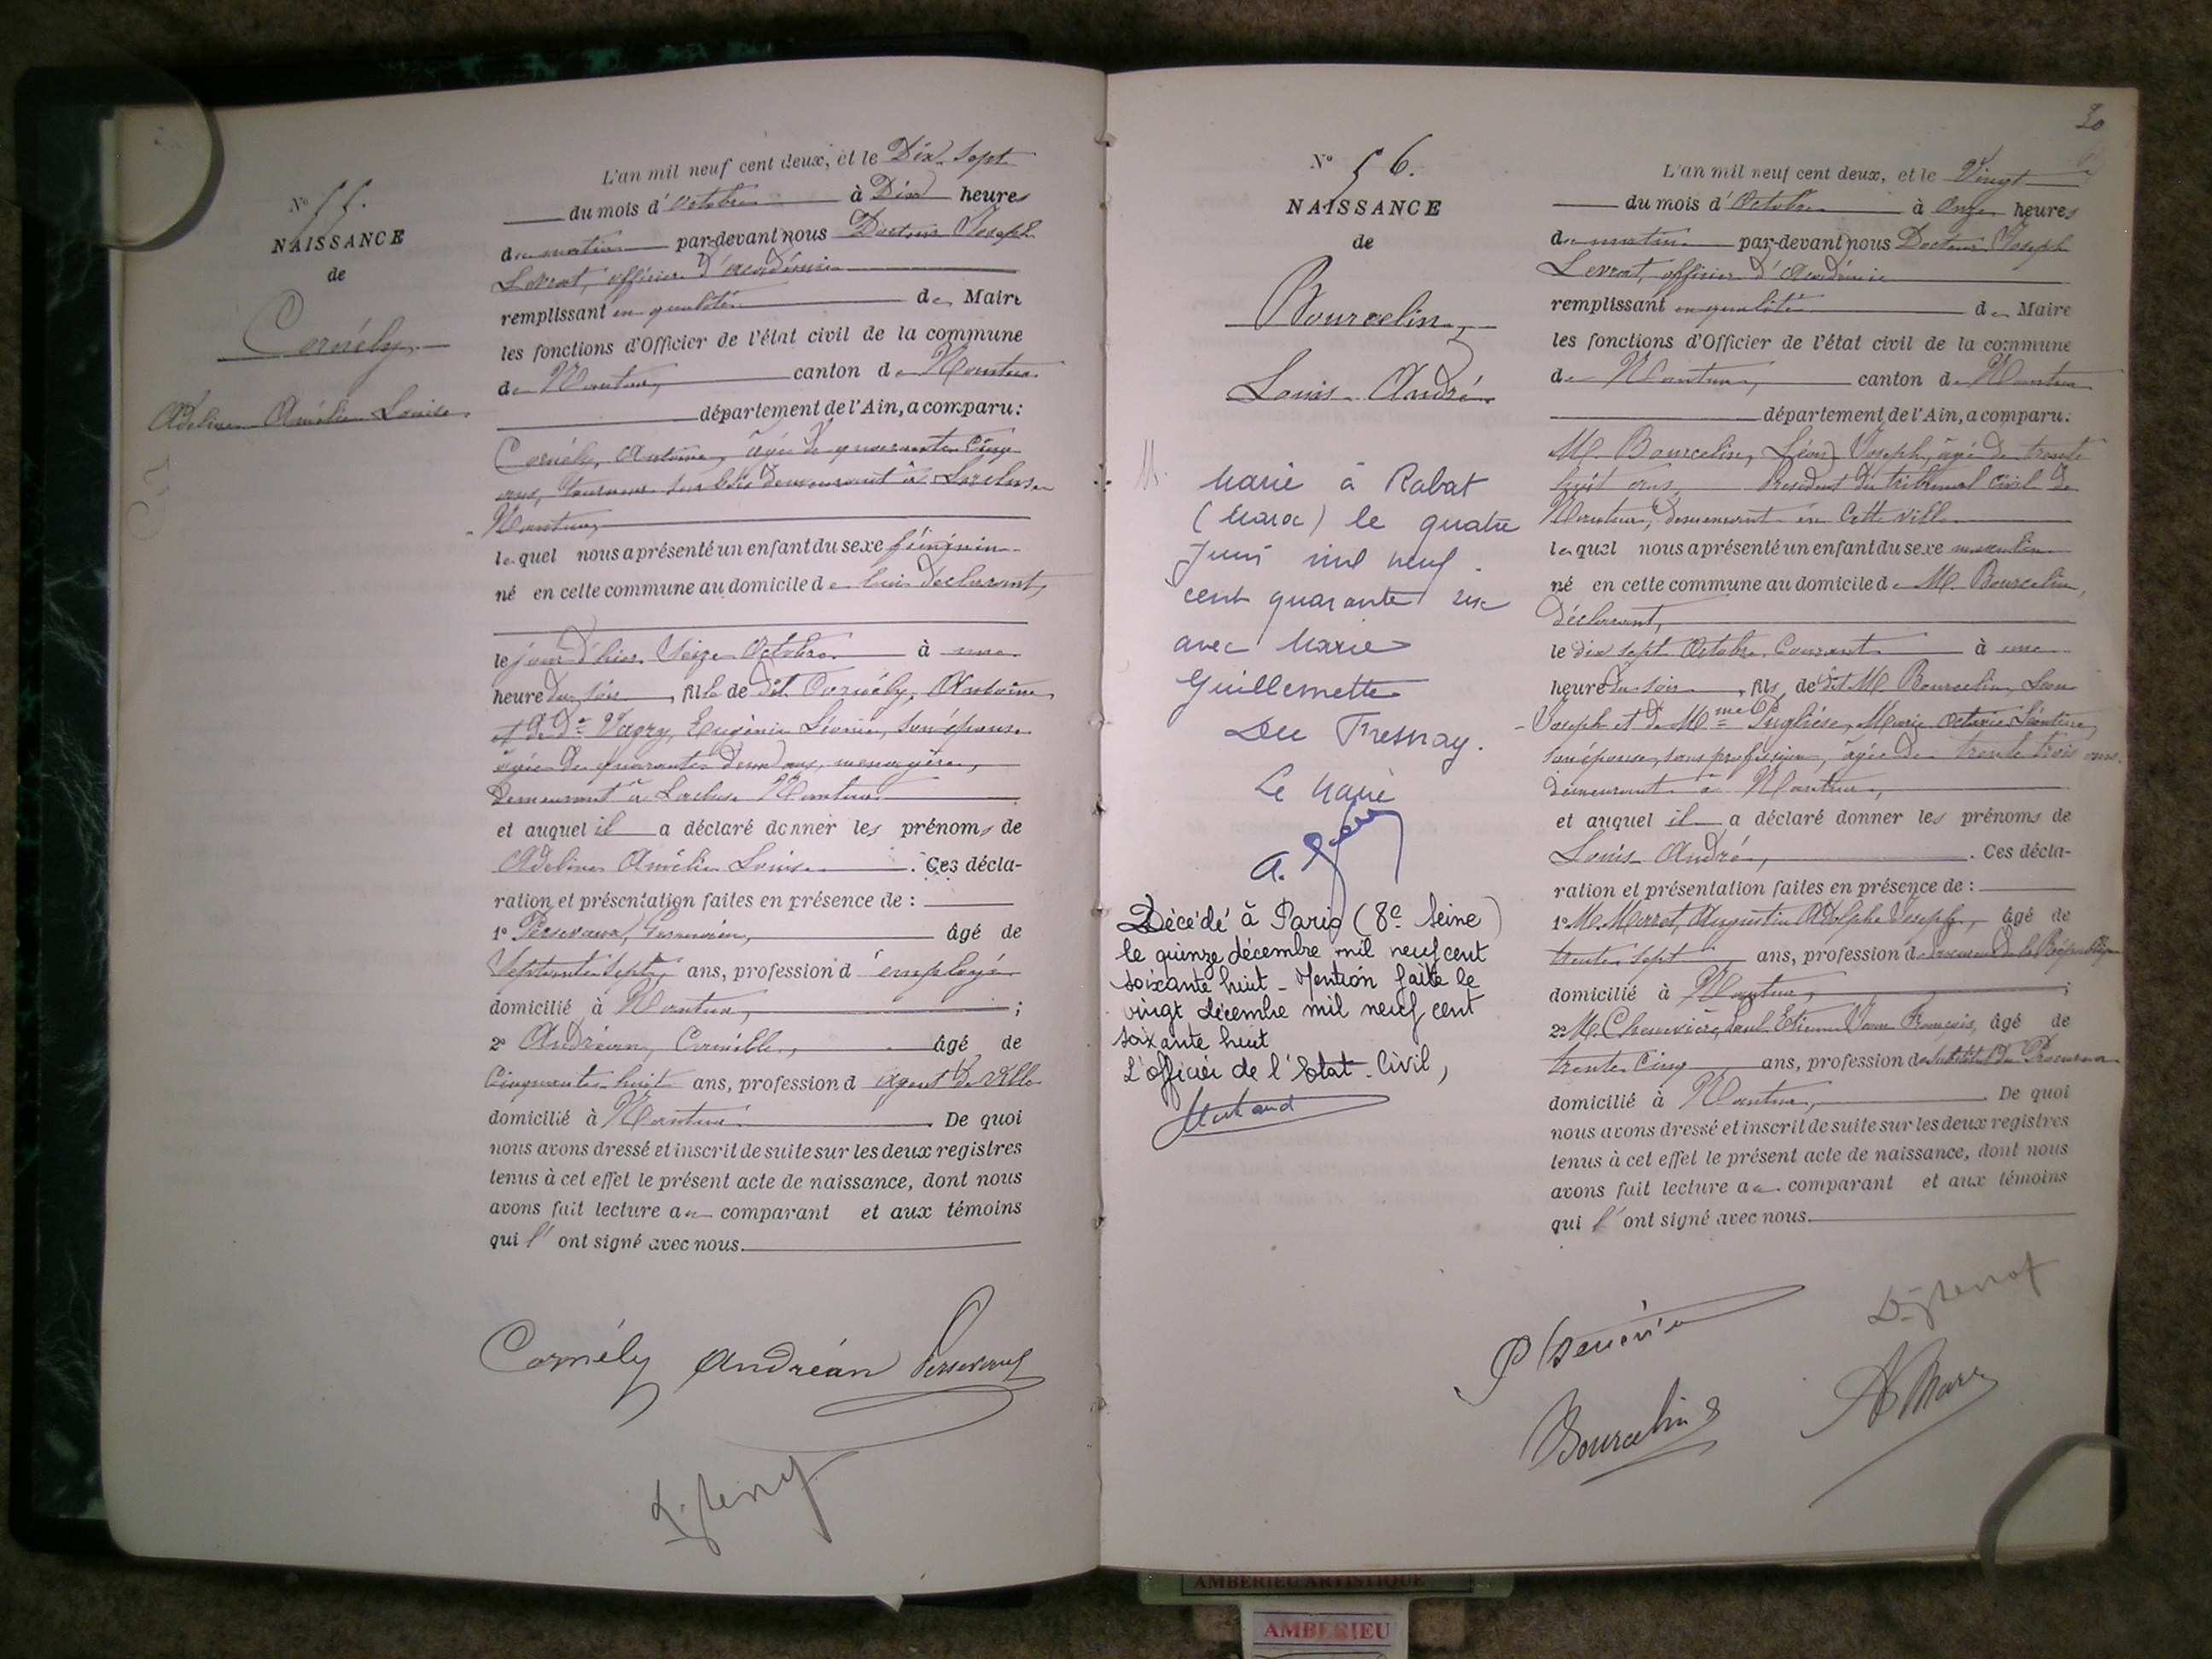 N° 55.
NAISSANCE
de
Cornély
Adeline Amélie Louise
L'an mil neuf cent deux, et le Dix-sept
du mois d'octobre à Dix heures
du matin par-devant nous Docteur Joseph
Levrat, officier d'académie
remplissant en qualité de Maire
les fonctions d'Officier de l'état civil de la commune
de Nantua, canton de Nantua
département de l'Ain, a comparu:
Cornély, Antoine, âgé de quarante cinq
ans, tourneur sur bois demeurant à Lacluse
Nantua,
lequel nous a présenté un enfant du sexe féminin
né en cette commune au domicile de lui déclarant,
le jour d'hier Seize Octobre à une
heure du soir, fille de dit Cornély, Antoine
et de De Eugénie Léonie, son épouse
âgée de quarante deux ans, menagère,
demeurant à Lacluse Nantua
et auquel il a déclaré donner les prénoms de
Adeline Amélie Louise. Ces décla-
ration et présentation faites en présence de :
1° âgé de
Septante sept ans, profession d'employé
domicilié à Nantua, ;
2° Andréan, Camille, âgé de
Cinquante huit ans, profession d'agent de ville
domicilié à Nantua. De quoi
nous avons dressé et inscrit de suite sur les deux registres
tenus à cet effet le présent acte de naissance, dont nous
avons fait lecture au comparant et aux témoins
qui l'ont signé avec nous.
Cornély Andréan
30
N° 56.
NAISSANCE
de
Bourcelin,
Louis André
Marié à Rabat
(Maroc) le quatre
Juin mil neuf
cent quarante six
avec Marie
Guillemette
Du Fresnay.
Le Maire
A.
Décédé à Paris (8e Seine)
le quinze décembre mil neuf cent
soixante huit - Mention faite le
vingt décembre mil neuf cent
soixante huit
L'officier de l'Etat-Civil,
L'an mil neuf cent deux, et le Vingt
du mois d'Octobre à Onze heures
du matin par-devant nous Docteur Joseph
Levrat, officier d'Académie
remplissant en qualité de Maire
les fonctions d'Officier de l'état civil de la commune
de Nantua, canton de Nantua
département de l'Ain, a comparu:
M. Bourcelin, Léon Joseph, âgé de trente
huit ans, Président du tribunal civil de
Nantua, demeurant en cette ville
lequel nous a présenté un enfant du sexe masculin
né en cette commune au domicile de M. Bourcelin,
déclarant,
le dix sept Octobre Courant à une
heure du soir, fils de dit M. Bourcelin, Léon
Joseph et de Mme Pugliése, Marie Octavie Léontine,
son épouse, sans profession, âgée de trente trois ans.
demeurant à Nantua,
et auquel il a déclaré donner les prénoms de
Louis André, . Ces décla-
ration et présentation faites en présence de :
1° M. Augustin Adolphe Joseph, âgé de
trente sept ans, profession de Procureur de la République
domicilié à Nantua, ;
2° M. Paul Etienne Jean François, âgé de
trente cinq ans, profession de Substitut du Procureur
domicilié à Nantua, De quoi
nous avons dressé et inscrit de suite sur les deux registres
tenus à cet effet le présent acte de naissance, dont nous
avons fait lecture au comparant et aux témoins
qui l'ont signé avec nous.
Bourcelin
AMBERIEU ARTISTIQUE
AMBERIEU